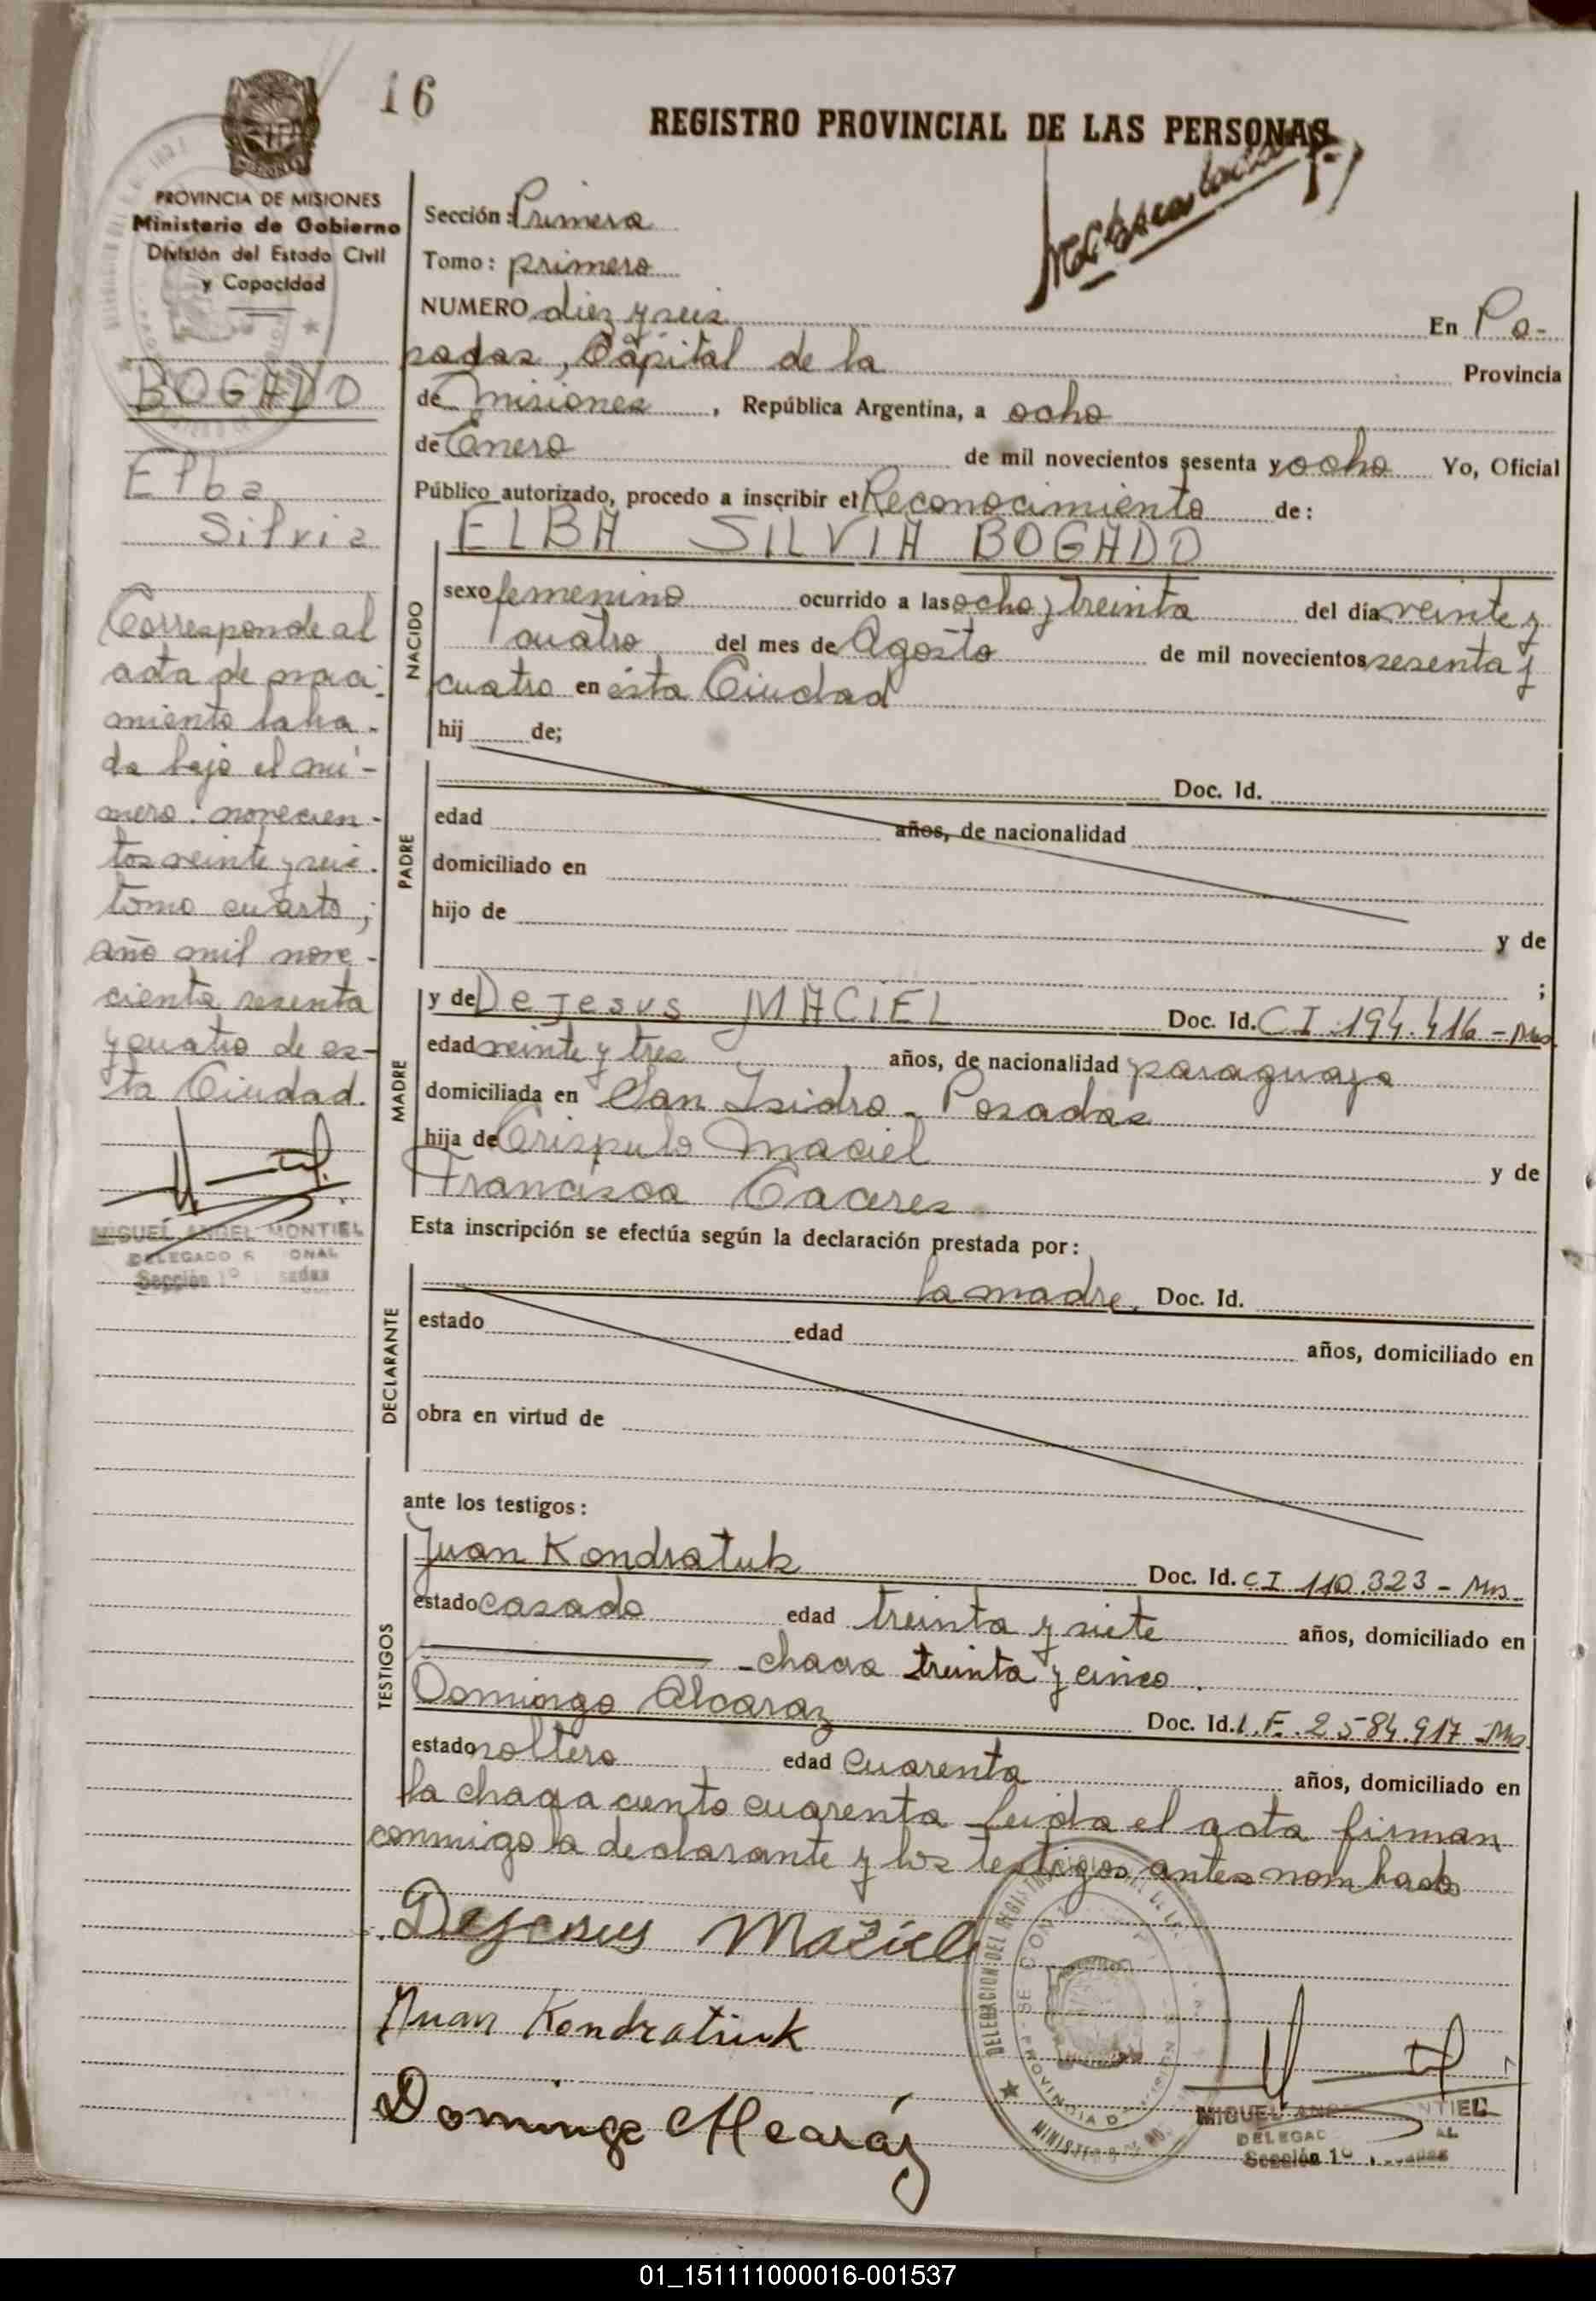 16
REGISTRO PROVINCIAL DE LAS PERSONAS
PROVINCIA DE MISIONES
Ministerio de Gobierno
División del Estado Civil
y Capacidad
BOGADO
Elba
Silvia
Corresponde al
acta de naci-
miento labra-
da bajo el nú-
mero: novecien-
tos veinte y seis.
tomo cuarto,
año mil nove-
cientos sesenta
y cuatro de es-
ta Ciudad.
MIGUEL ANGEL MONTIEL
DELEGADO
Sección 1º
Sección: Primera
Tomo: primero
NUMERO diez y seis En Po-
sadas, Capital de la Provincia
de Misiones, República Argentina, a ocho
de Enero de mil novecientos sesenta y ocho Yo, Oficial
Público autorizado, procedo a inscribir el Reconocimiento de:
ELBA SILVIA BOGADO
NACIDO
sexo femenino ocurrido a las ocho y treinta del día veinte y
cuatro del mes de Agosto de mil novecientos sesenta y
cuatro en ésta Ciudad
hij de;
PADRE
Doc. Id.
edad años, de nacionalidad
domiciliado en
hijo de y de
;
MADRE
y de DeJesus MACIEL Doc. Id. C I 194.416 - Mns.
edad veinte y tres años, de nacionalidad paraguaya
domiciliada en San Isidro - Posadas
hija de Crispulo Maciel y de
Francisca Caceres
Esta inscripción se efectúa según la declaración prestada por:
DECLARANTE
la madre, Doc. Id.
estado edad años, domiciliado en
obra en virtud de
ante los testigos:
TESTIGOS
Juan Kondratuk Doc. Id. C I 110.323 - Mns.
estado casado edad treinta y siete años, domiciliado en
- chacra treinta y cinco.
Domingo Alcaraz Doc. Id. L.E. 2584.917 - Mns.
estado soltero edad cuarenta años, domiciliado en
la chacra ciento cuarenta leida el acta firman
conmigo la declarante y los testigos antes nombrados
Dejesus Maciel
Juan Kondratiuk
Domingo Alcaráz
DELEGACION DEL REGISTRO
MIGUEL MONTIEL
Sección 1º
01_151111000016-001537